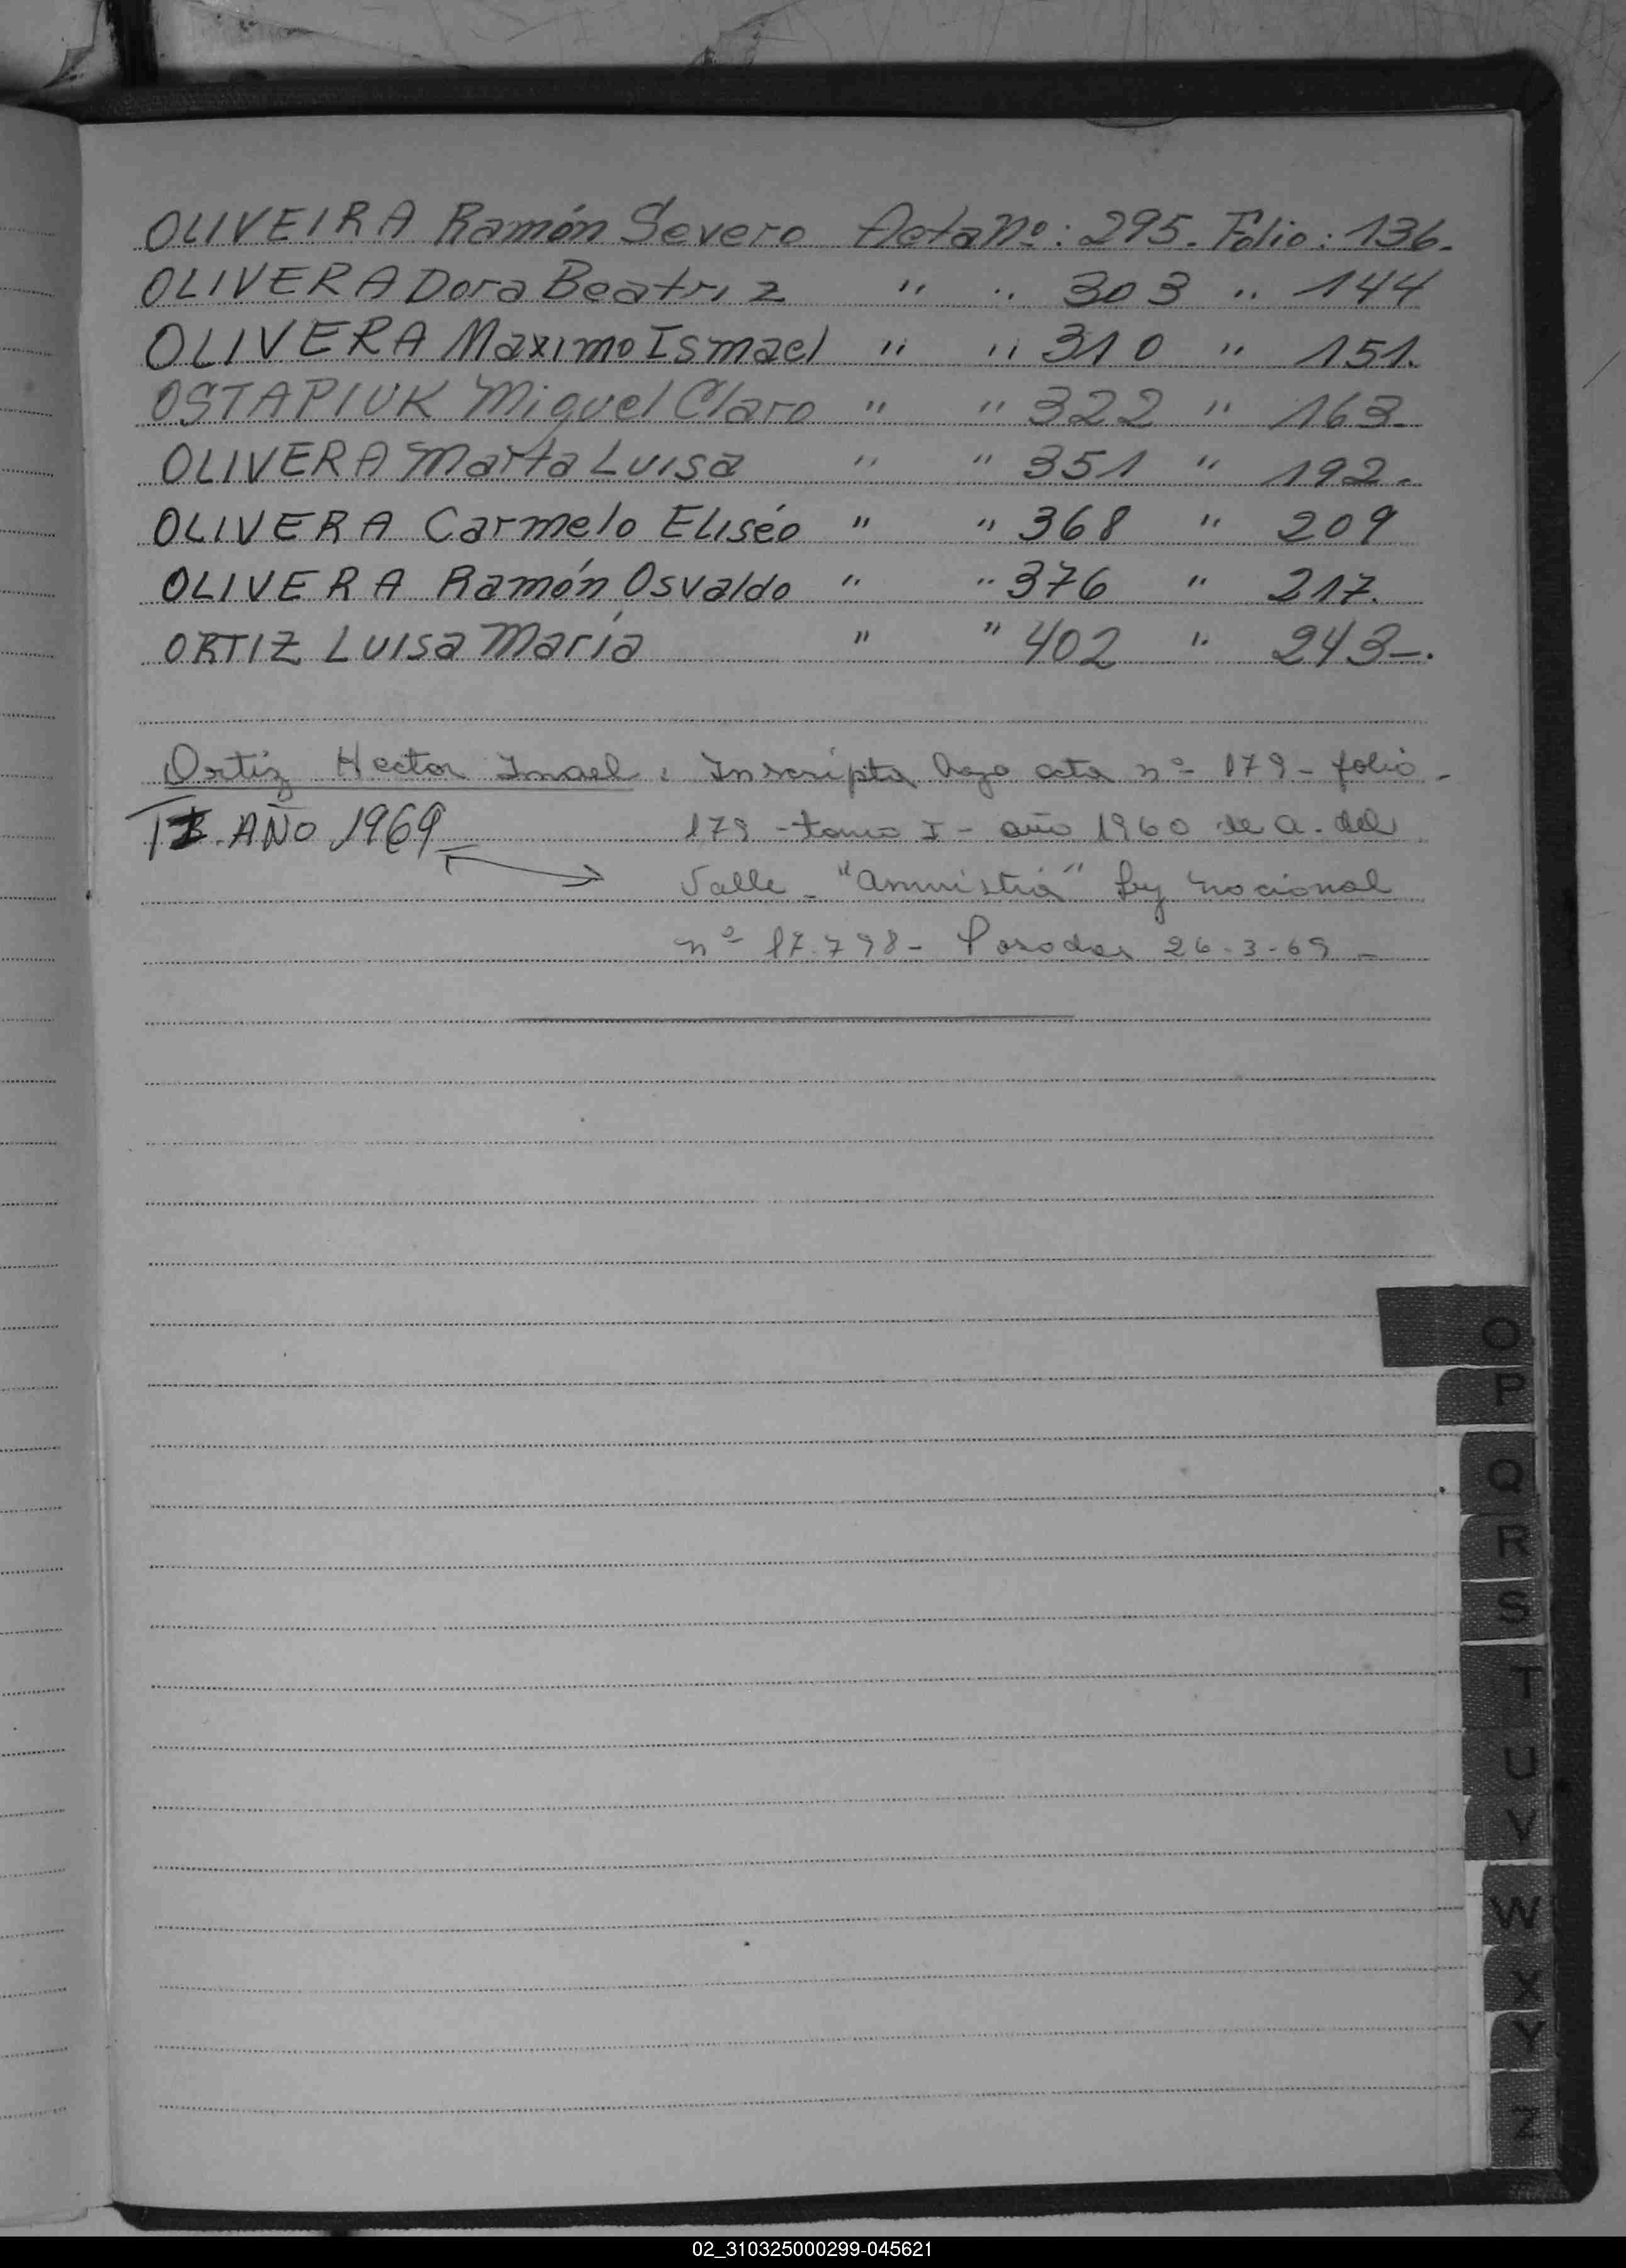 OLIVEIRA Ramón Severo Acta Nº: 295. Folio: 136.
OLIVERA Dora Beatriz " " 303 " 144
OLIVERA Maximo Ismael " " 310 " 151.
OSTAPIUK Miguel Claro " " 322 " 163.
OLIVERA Marta Luisa " " 351 " 192.
OLIVERA Carmelo Eliséo " " 368 " 209
OLIVERA Ramón Osvaldo " " 376 " 217.
ORTIZ Luisa María " " 402 " 243-.
Ortiz Hector Imael: Inscripta bajo acta nº 179 - folio
AÑO 1969 179 - tomo I - año 1960 de A. del
Valle - "Amnistia" ley nacional
nº 17.798 - Posadas 26-3-69 -
O
P
Q
R
S
T
U
V
W
X
Y
Z
02_310325000299-045621